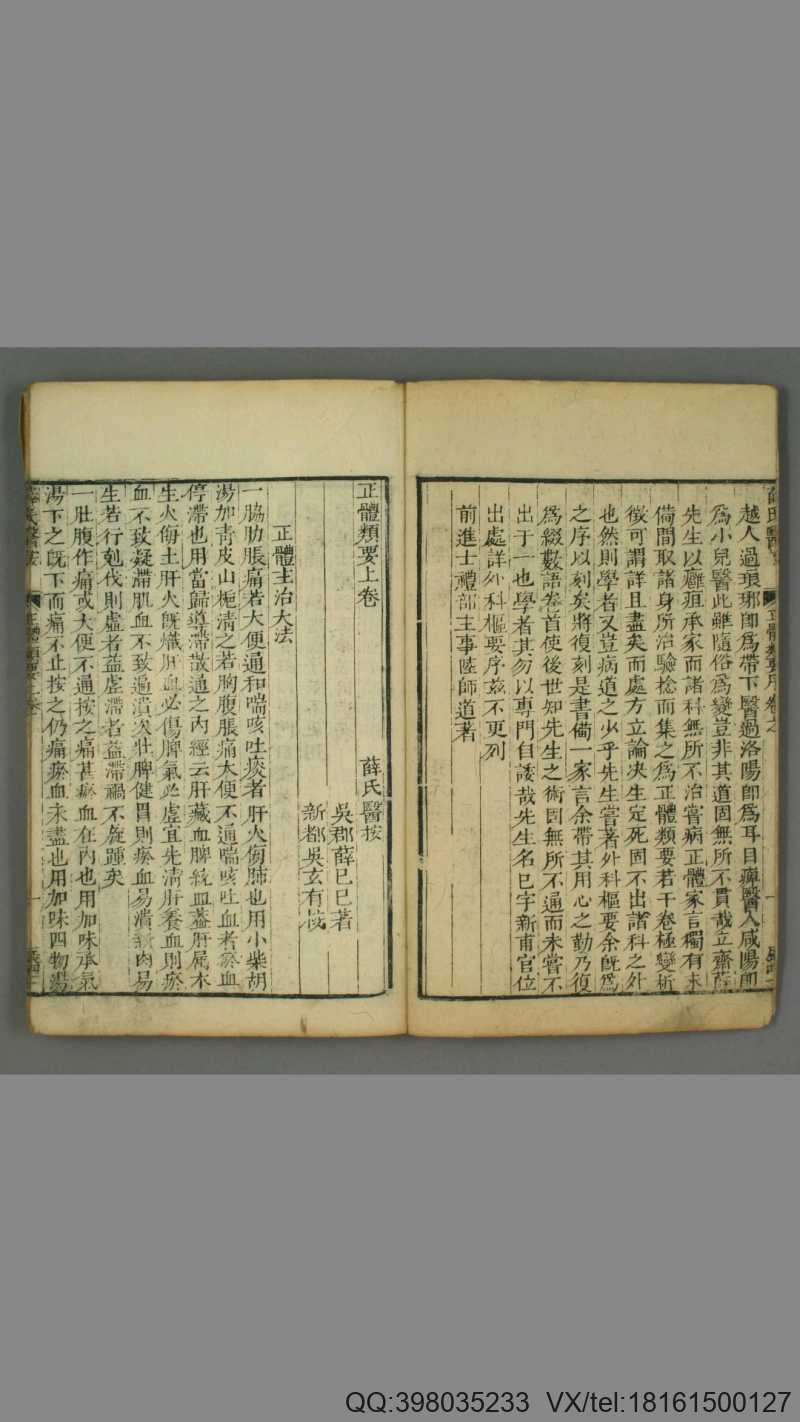 越人過琅琊即為帶下醫過洛陽即為耳目痺醫入咸陽即
為小兒醫此雖隨俗為變豈非其道固無所不貫哉立齋薛
先生以癰疽承家而諸科無所不治嘗病正體家言獨有未
備間取諸身所治驗捴而集之為正體類要若干卷極變析
微可謂詳且盡矣而處方立論决生定死固不出諸科之外
也然則學者又豈病道之少乎先生嘗著外科樞要余既為
之序以刻矣將復刻是書備一家言余帶其用心之勤乃復
為綴數語卷首使後世知先生之術固無所不通而未嘗不
出于一也學者其勿以專門自諉哉先生名已字新甫官位
出處詳外科樞要序茲不更列
前進士禮部主事陸師道著
正體類要上卷
薛氏醫按
吳郡薛已已著
新都吳玄有校
正體主治大法
一脇肋脹痛若大便通和喘咳吐痰者肝火侮肺也用小柴胡
湯加青皮山梔清之若胸腹脹痛大便不通喘咳吐血者瘀血
停滯也用當歸導滯散通之內經云肝藏血脾統血蓋肝屬木
生火侮土肝火既熾肝血必傷脾氣必虛宜先清肝養血則瘀
血不致凝滯肌血不致遍潰次壯脾健胃則瘀血易潰新肉易
生若行剋伐則虛者益虛滯者益滯禍不旋踵矣
一肚腹作痛或大便不通按之痛甚瘀血在內也用加味承氣
湯下之既下而痛不止按之仍痛瘀血未盡也用加味四物湯
QQ:398035233 VX/tel:18161500127